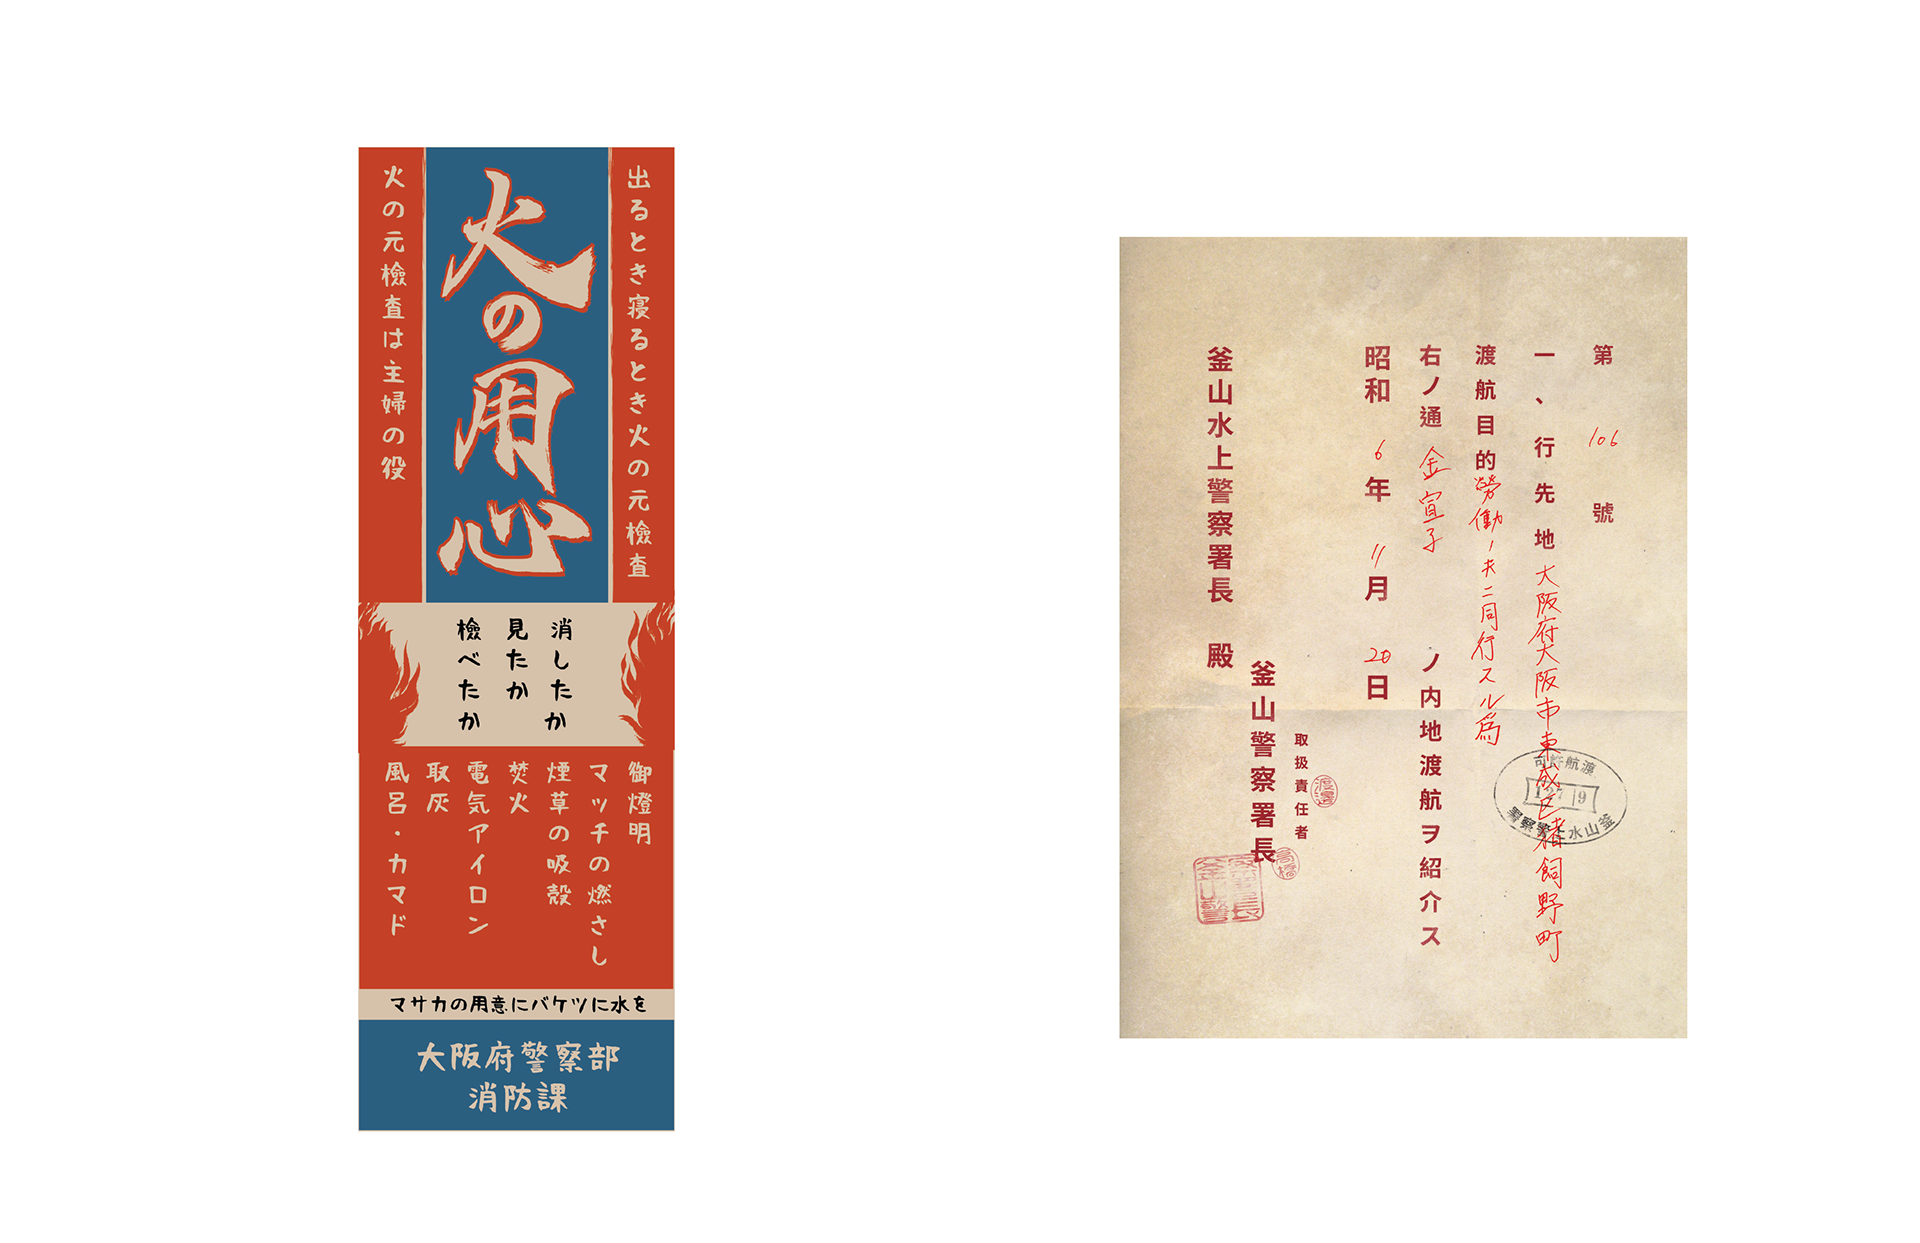 出るとき寝るとき火の元檢査
火の用心
火の元檢査は主婦の役
消したか
見たか
檢べたか
御燈明
マッチの燃さし
煙草の吸殻
焚火
電気アイロン
取灰
風呂・カマド
マサカの用意にバケツに水を
大阪府警察部
消防課
第 106 號
一、行先地 大阪府大阪市東成区猪飼野町
渡航目的 勞働ノ夫ニ同行スル為
右ノ通 金宣子 ノ内地渡航ヲ紹介ス
昭和 6年 11月 20日
取扱責任者
釜山警察署長
釜山水上警察署長 殿
渡邊
高橋
渡航許可
釜山水上警察署